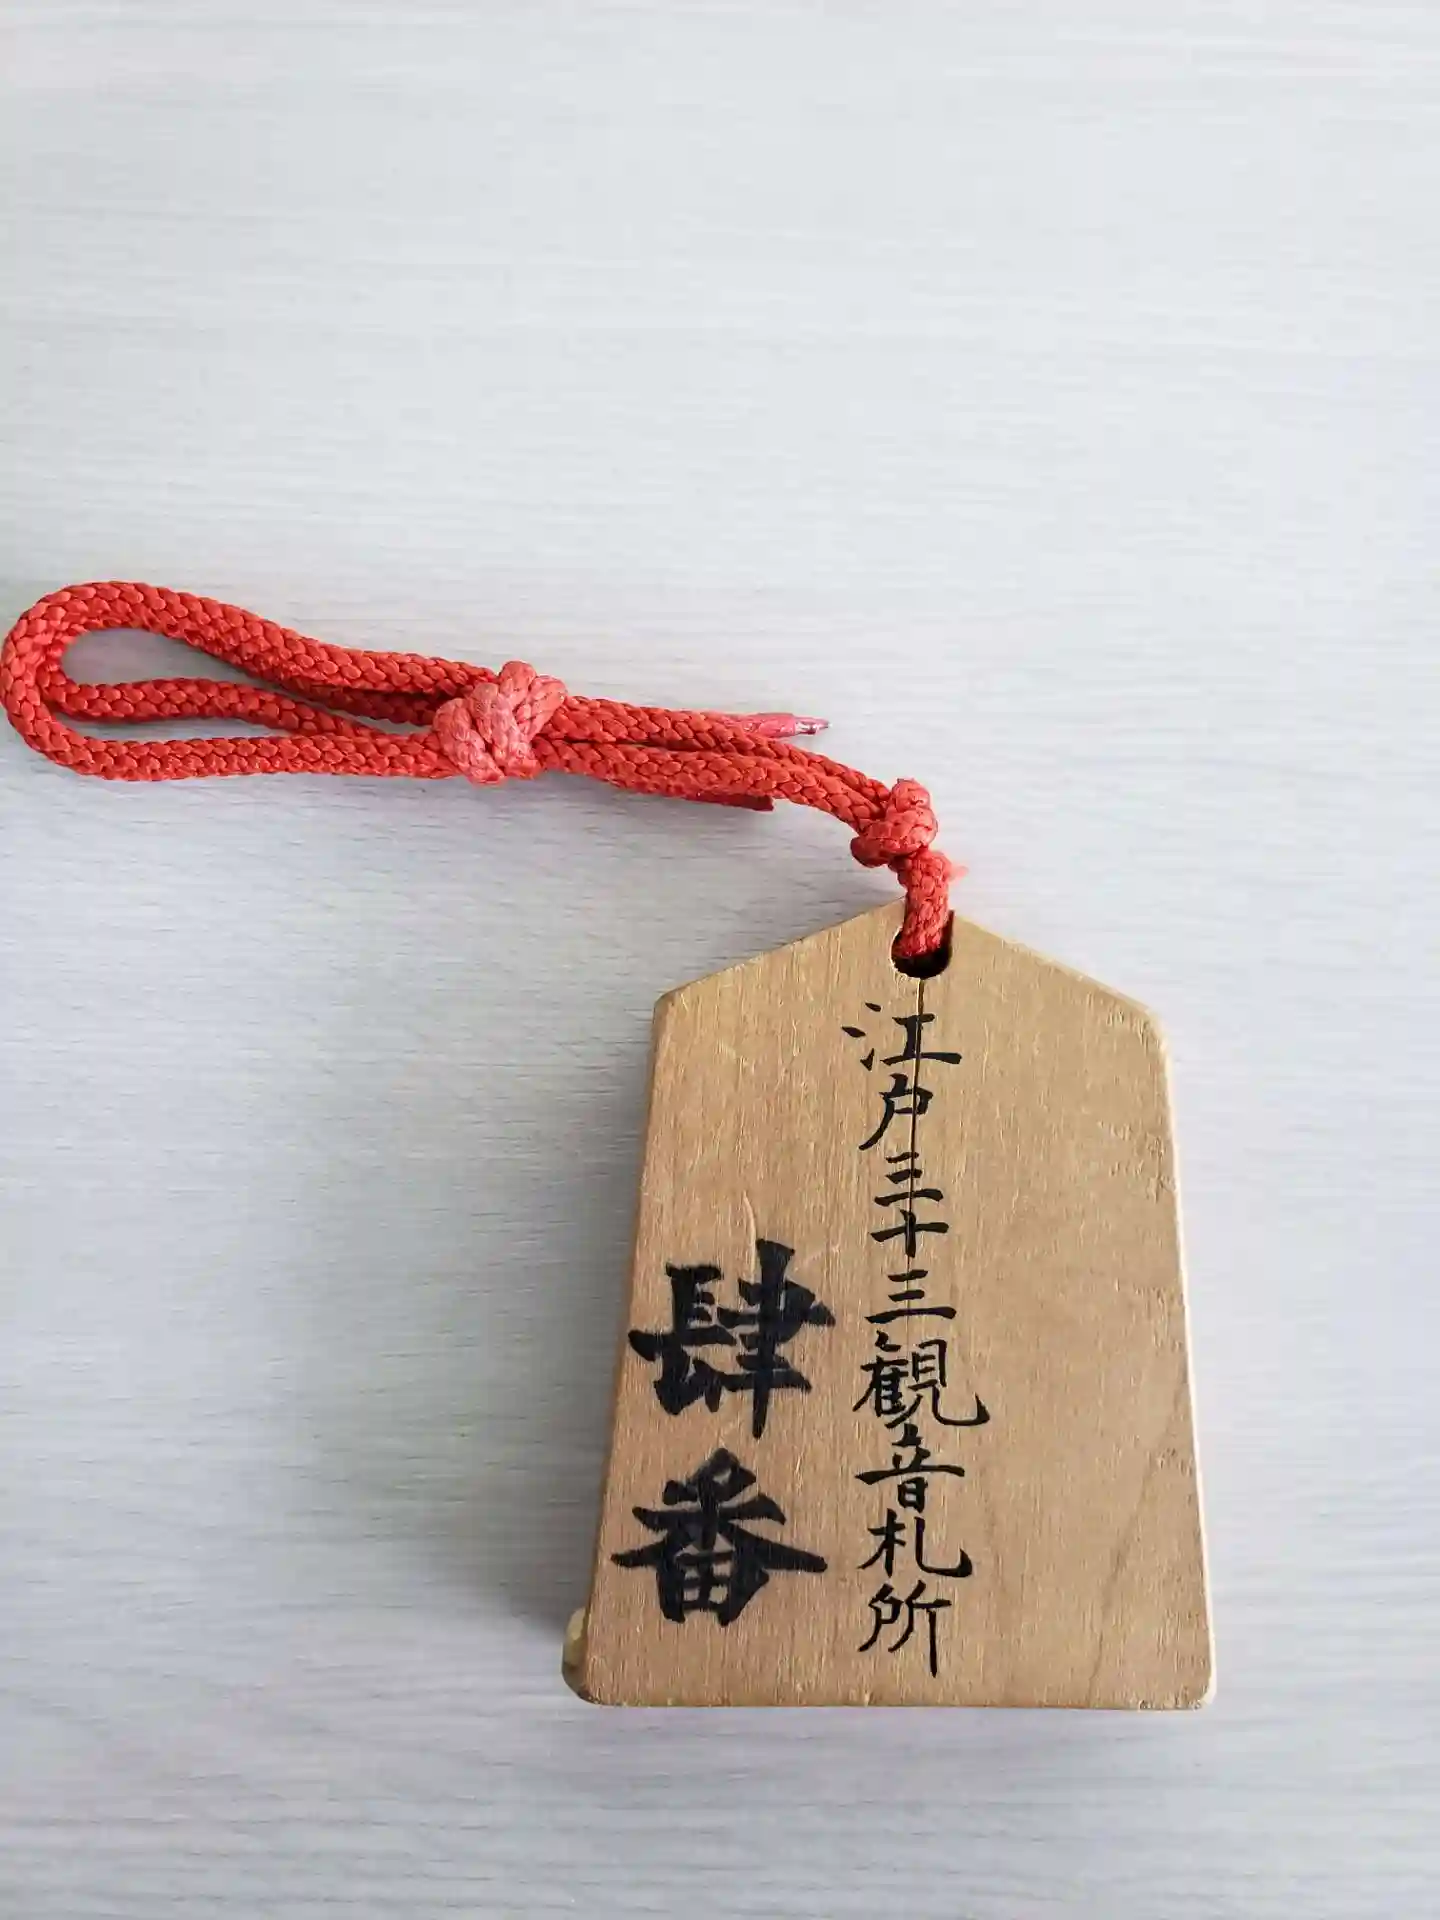 江戸三十三観音札所
肆番